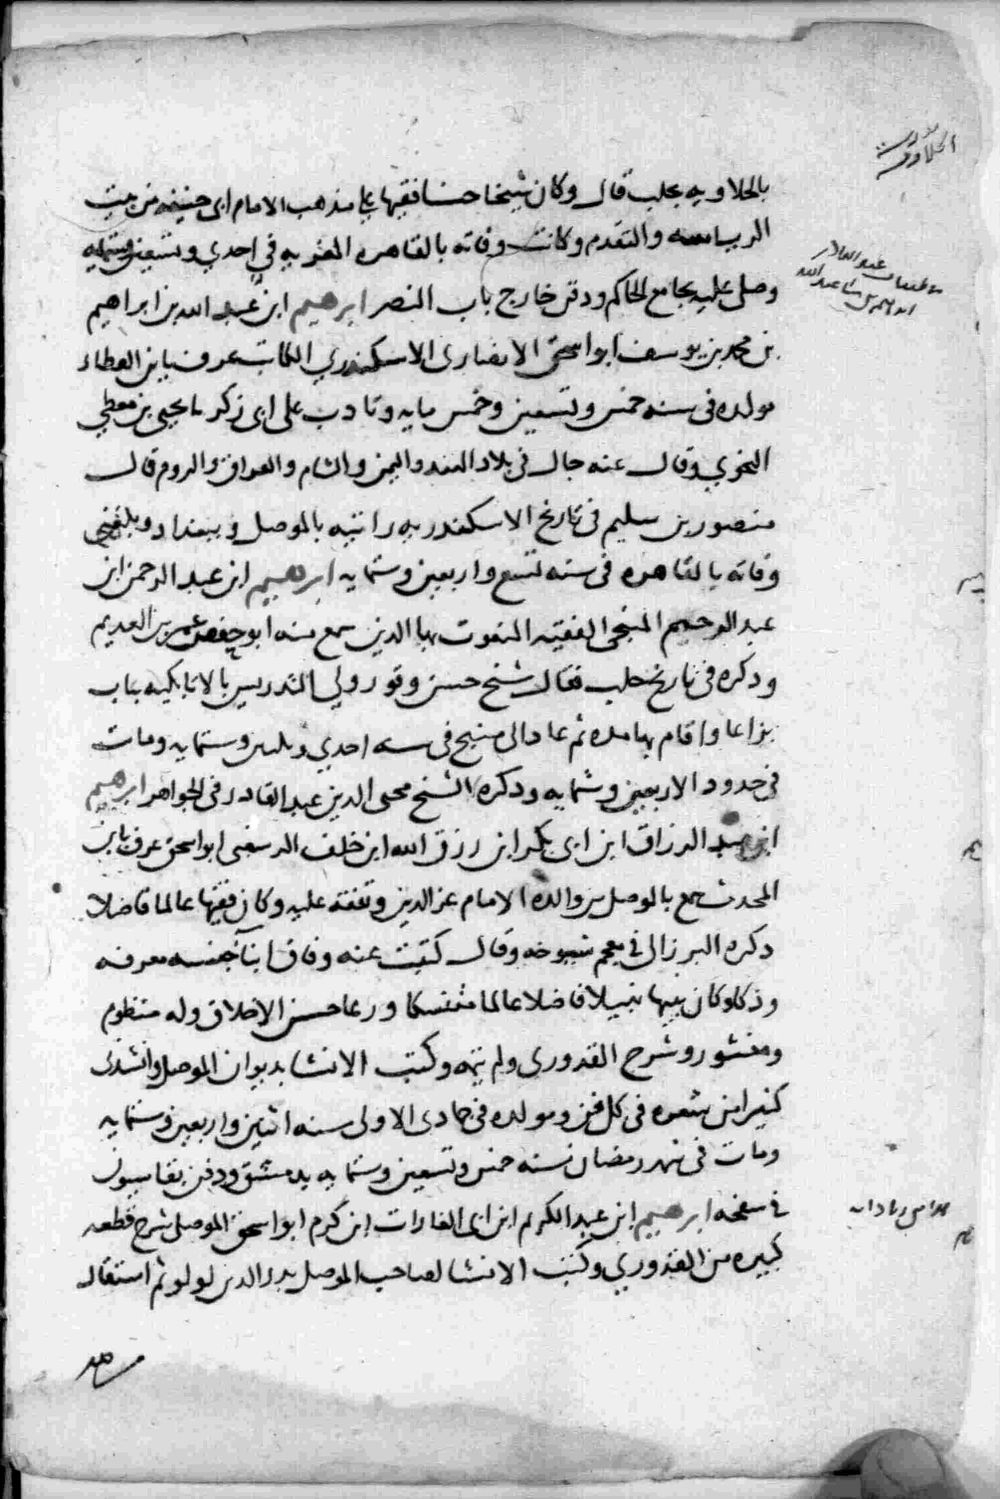 بالحلاويه بحلب قال وكان شيخا حسنا فقيها على مذهب الامام ابى حنيفه من بيت
الرياسه والتقدم وكانت وفاته بالقاهره المعزيه في احدي وتسعين وستمايه
وصلى عليه بجامع الحاكم ودفن خارج باب النصر ابرهيم ابن عبد الله بن ابراهيم
بن محمد بن يوسف ابو اسحق الانصارى الاسكندري الكاتب عرف بابن العطار
مولده فى سنه خمس وتسعين وخمس مايه وتادب على ابى زكريا يحيى بن معطي
النحوي وقال عنه جال فى بلاد الهند واليمن والشام والعراق والروم قال
منصور بن سليم فى تاريخ الاسكندريه رايته بالموصل وببغداد وبلغنى
وفاته بالقاهره فى سنه تسع واربعين وستمايه ابرهيم ابن عبد الرحمن ابن
عبد الرحيم المنبجى الفقيه المنعوت بها الدين سمع منه ابو حفص عمر بن العديم
وذكره فى تاريخ حلب فقال شيخ حسن وقور ولي التدريس بالاتابكيه بباب
بزاعا واقام بها مده ثم عاد الى منبج فى سنه احدي وثلثين وستمايه ومات
فى حدود الاربعين وستمايه وذكره الشيخ محيى الدين عبد القادر فى الجواهر ابرهيم
ابن عبد الرزاق ابن ابى بكر ابن رزق الله ابن خلف الرسعنى ابو اسحق عرف بابن
المحدث سمع بالموصل من والده الامام عز الدين وتفقه عليه وكان فقيها عالما فاضلا
ذكره البرزالى فى معجم شيوخه وقال كتبت عنه وفاق ابنا جنسه معرفه
وذكا وكان نبيها نبيلا فاضلا عالما متنسكا ورعا حسن الاخلاق وله منظوم
ومنثور وشرح القدورى ولم يتمه وكتب الانشا بديوان الموصل وانشدنى
كثيرا من شعره فى كل فن ومولده فى جمادى الاولى سنه اثنين واربعين وستمايه
ومات فى شهر رمضان سنه خمس وتسعين وستمايه بدمشق ودفن بقاسيون
فى سفحه ابرهيم ابن عبد الكريم ابن ابى الغارات ابن كرم ابو اسحق الموصلى شرح قطعه
كبيره من القدوري وكتب الانشا لصاحب الموصل بدر الدين لولو ثم استقال